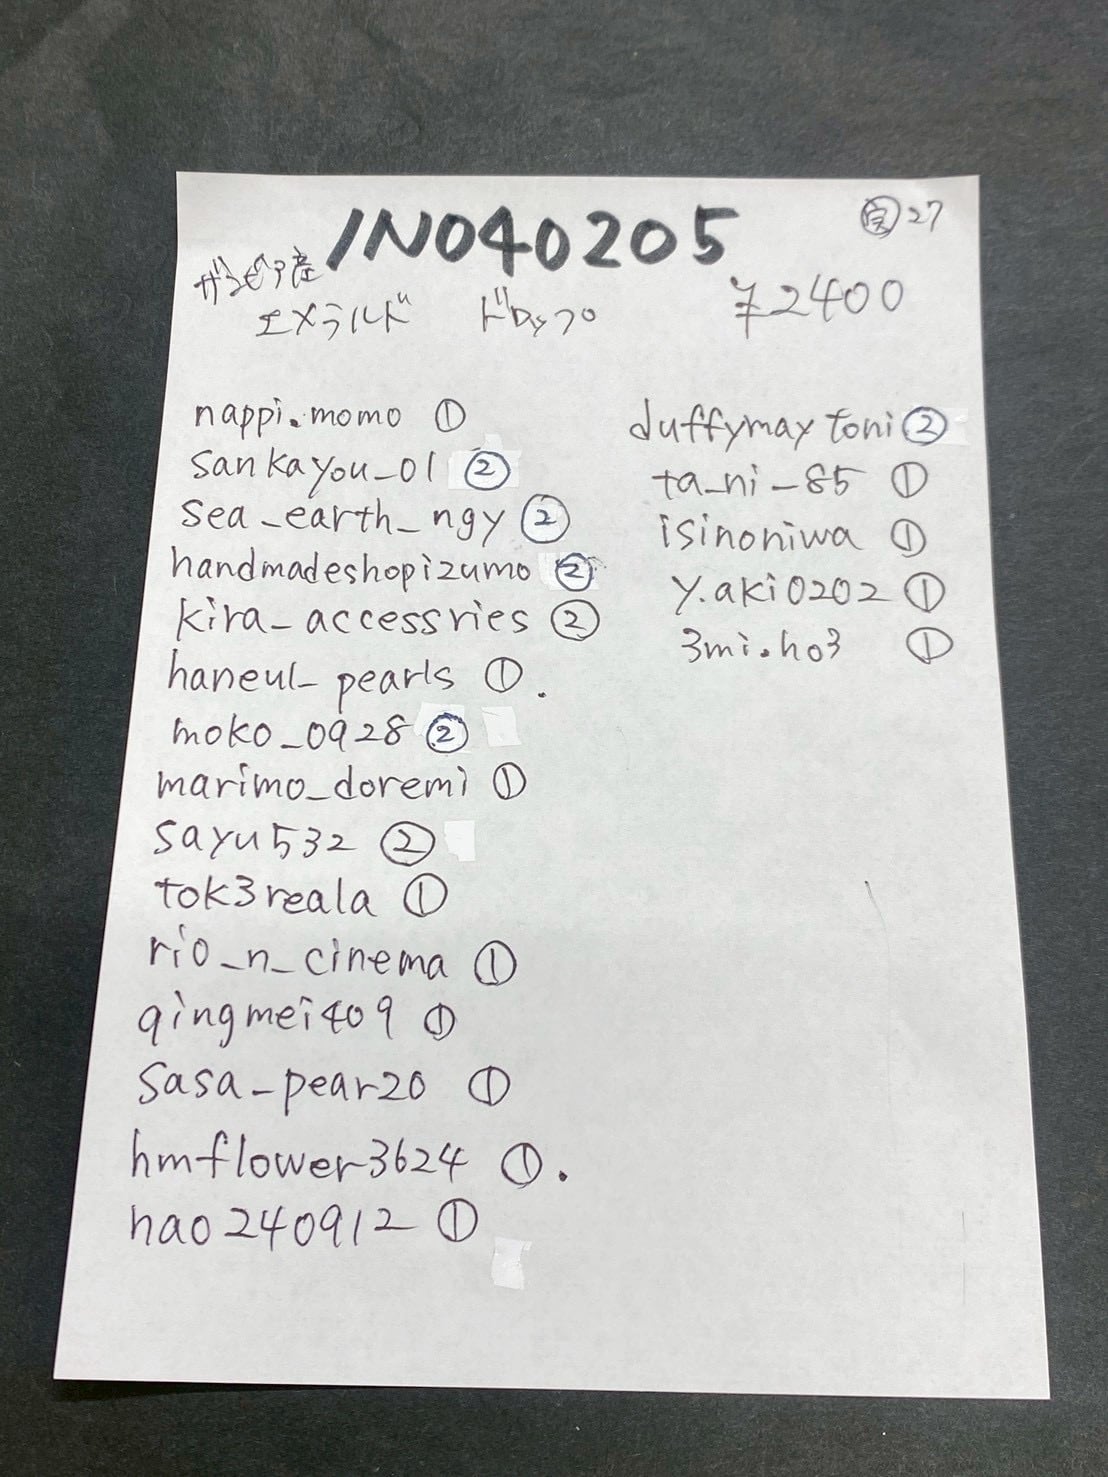 IN040205
㊢27
ザンビア産
エメラルド ドロップ
¥2400
nappi.momo ①
sankayou_01 ②
sea_earth_ngy ②
handmadeshopizumo ②
kira_accessries ②
haneul_pearls ①.
moko_0928 ②
marimo_doremi ①
sayu532 ②
tok3reala ①
rio_n_cinema ①
qingmei409 ①
sasa_pear20 ①
hmflower3624 ①.
hao240912 ①
duffymaytoni ②
ta_ni_85 ①
isinoniwa ①
y.aki0202 ①
3mi.ho3 ①